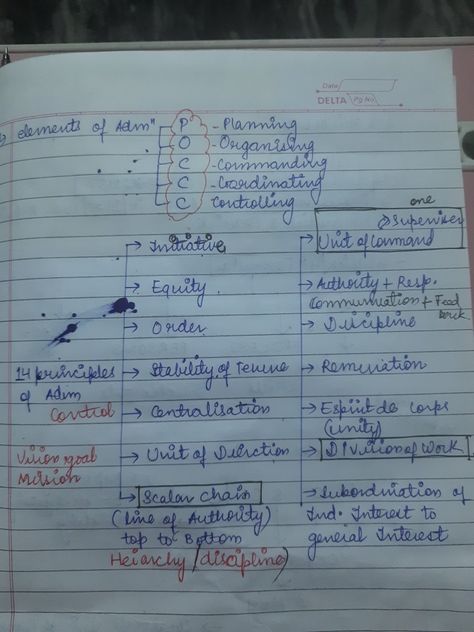 Date
DELTA Pg No.
elements of Admn
P - Planning
O - Organising
C - Commanding
C - Coordinating
C Controlling
one
Supervisor
→ Initiative
→ Unit of Command
→ Equity
→ Authority + Resp.
Communication + Feed
back
→ Order
→ Discipline
14 principles
of Adm
→ Stability of Tenure
→ Remuneration
Control
→ Centralisation
→ Espirit de Corps
(Unity)
Vision goal
Mission
→ Unit of Direction
→ Division of Work
→ Scalar Chain
(line of Authority)
top to Bottom
→ Subordination of
Ind. Interest to
general Interest
Heirarchy / discipline)